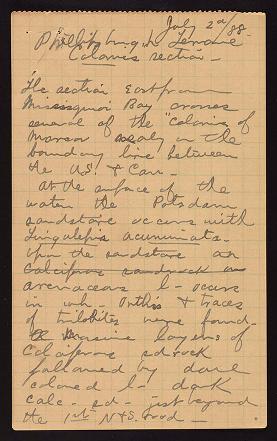 July 2d/88.
Phillipsburgh Terrane
Colonies section -
The section East from
Missisquoi Bay crosses
several of the "Colonies of
Marcou nearly on the
boundary line between
the U.S. & Can.
At the surface of the
water the Potsdam
sandstone occurs with
Lingulepis acuminata -
Upon the sandstone an
Calciferous sandrock
arenaceous l - occurs
in wh - Orthis & traces
of trilobites were found -
Massive layers of
Calciferous sdrock
followed by dove
colored l - dark
calc - ed - just beyond
the 1st N & S. road -